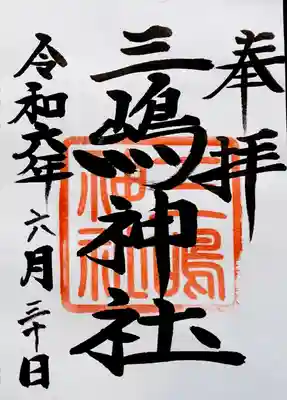 奉拝
三嶋神社
令和六年 六月 三十日
三嶋神社